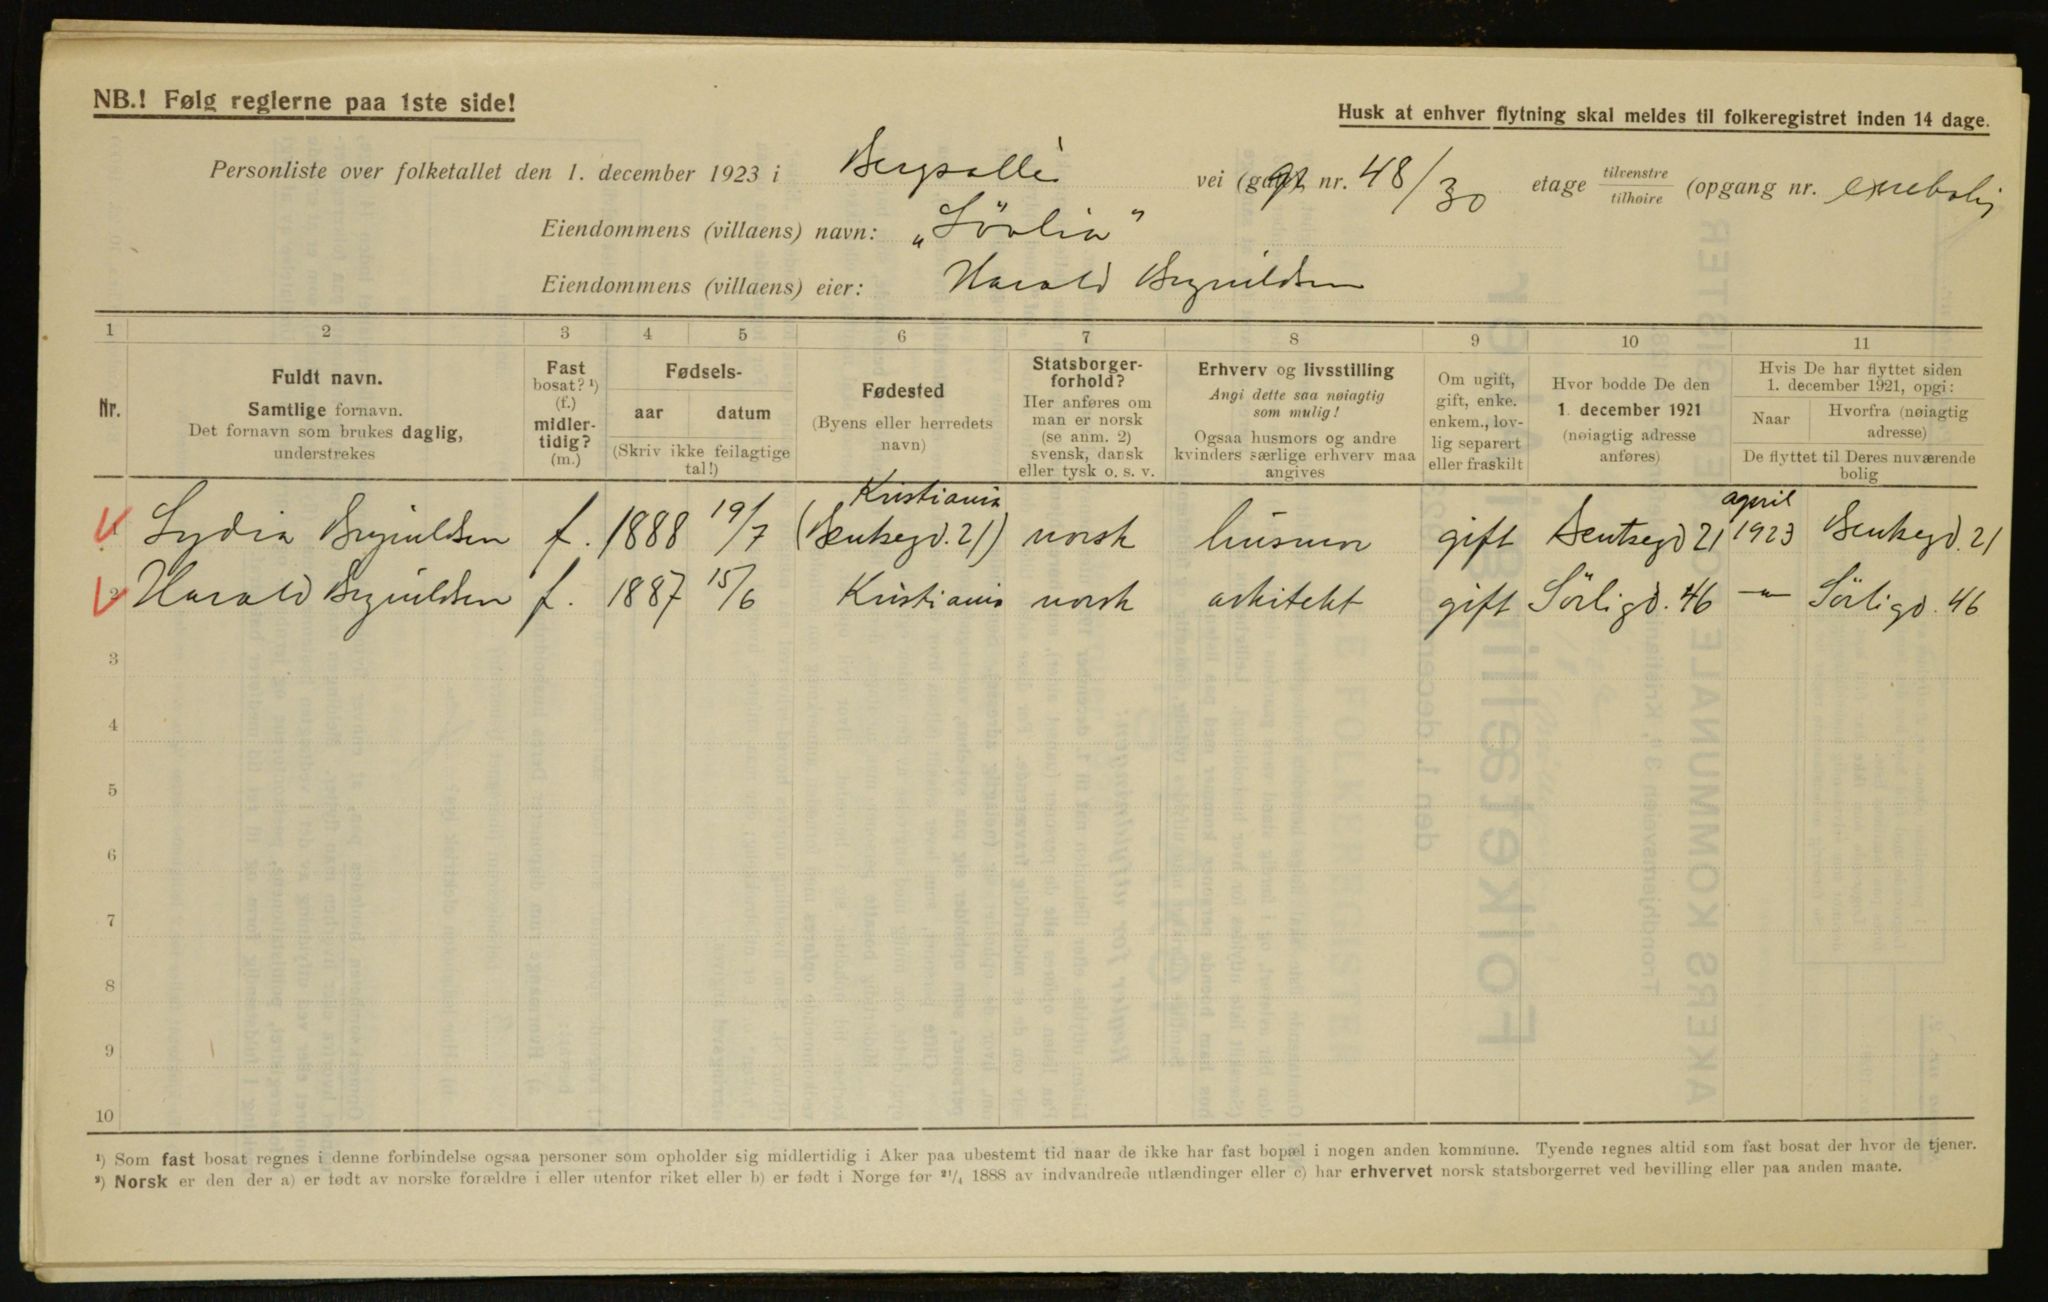 NB.! Følg reglerne paa 1ste side!
Husk at enhver flytning skal meldes til folkeregistret inden 14 dage.
Personliste over folketallet den 1. december 1923 i Bergsallé vei nr. 48/30 etage tilvenstre tilhøire (opgang nr. enebolig
Eiendommens (villaens) navn: „Lövlia"
Eiendommens (villaens) eier: Harald Brynildsen
1 2 3 4 5 6 7 8 9 10 11
Nr.
Fuldt navn.
Samtlige fornavn.
Det fornavn som brukes daglig,
understrekes
Fast
bosat? ¹)
(f.)
midler-
tidig?
(m.)
Fødsels-
aar datum
(Skriv ikke feilagtige
tal!)
Fødested
(Byens eller herredets
navn)
Statsborger-
forhold?
Her anføres om
man er norsk
(se anm. 2)
svensk, dansk
eller tysk o. s. v.
Erhverv og livsstilling
Angi dette saa nøiagtig
som mulig!
Ogsaa husmors og andre
kvinders særlige erhverv maa
angives
Om ugift,
gift, enke.
enkem., lov-
lig separert
eller fraskilt
Hvor bodde De den
1. december 1921
(nøiagtig adresse
anføres)
Hvis De har flyttet siden
1. december 1921, opgi:
Naar Hvorfra (nøiagtig
adresse)
De flyttet til Deres nuværende
bolig
Kristiania april
1 Lydia Brynildsen f. 1888 19/7 (Bentsegd. 21) norsk husmor gift Bentsegd 21 1923 Bentsegd. 21
2 Harald Brynildsen f. 1887 15/6 Kristiania norsk arkitekt gift Sörligd. 46 —"— Sörligd. 46
3
4
5
6
7
8
9
10
¹) Som fast bosat regnes i denne forbindelse ogsaa personer som opholder sig midlertidig i Aker paa ubestemt tid naar de ikke har fast bopæl i nogen anden kommune. Tyende regnes altid som fast bosat der hvor de tjener.
²) Norsk er den der a) er født av norske forældre i eller utenfor riket eller b) er født i Norge før ²¹/₄ 1888 av indvandrede utlændinger eller c) har erhvervet norsk statsborgerret ved bevilling eller paa anden maate.